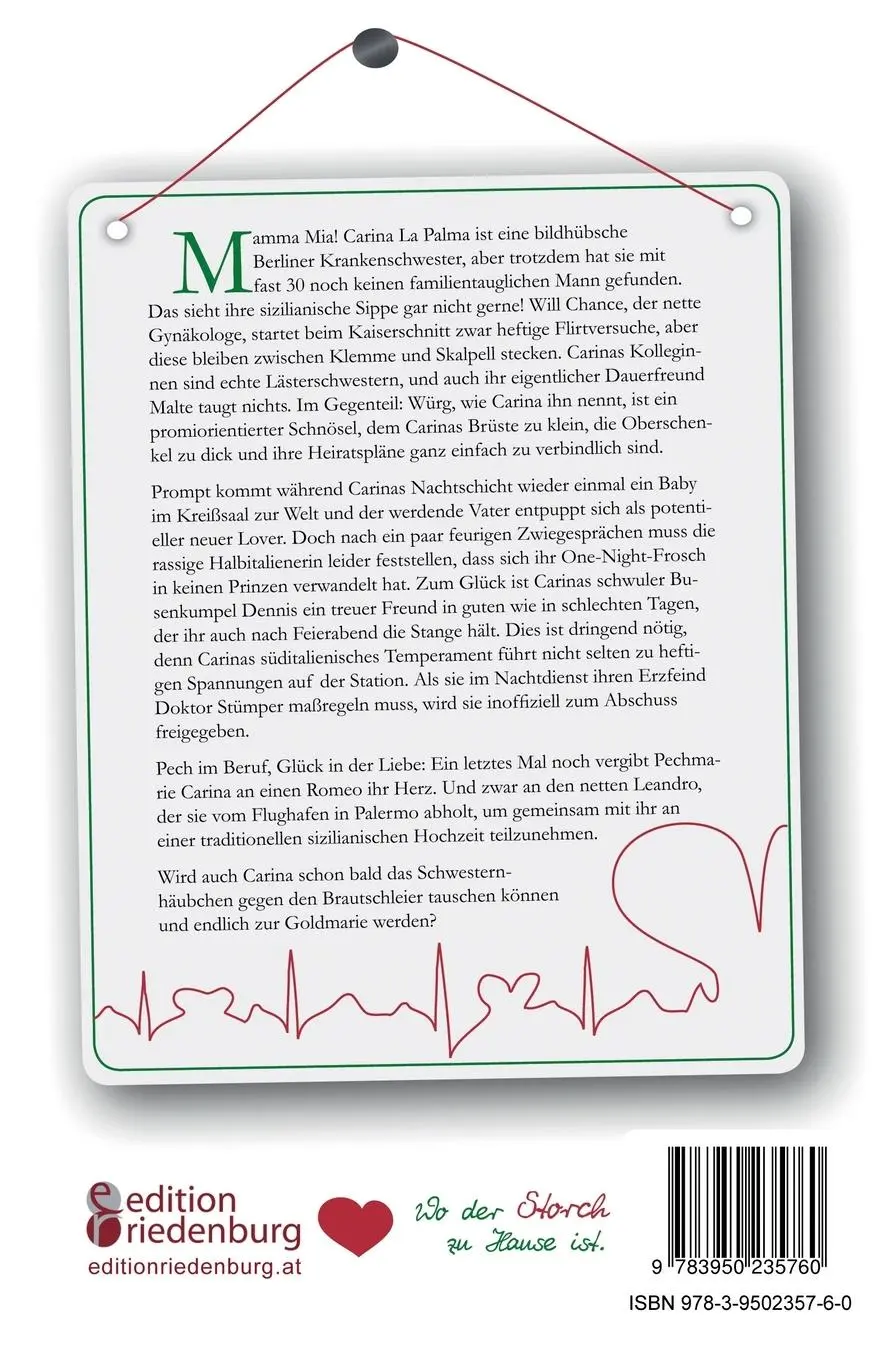 Mamma Mia! Carina La Palma ist eine bildhübsche
Berliner Krankenschwester, aber trotzdem hat sie mit
fast 30 noch keinen familientauglichen Mann gefunden.
Das sieht ihre sizilianische Sippe gar nicht gerne! Will Chance, der nette
Gynäkologe, startet beim Kaiserschnitt zwar heftige Flirtversuche, aber
diese bleiben zwischen Klemme und Skalpell stecken. Carinas Kollegin-
nen sind echte Lästerschwestern, und auch ihr eigentlicher Dauerfreund
Malte taugt nichts. Im Gegenteil: Würg, wie Carina ihn nennt, ist ein
promiorientierter Schnösel, dem Carinas Brüste zu klein, die Oberschen-
kel zu dick und ihre Heiratspläne ganz einfach zu verbindlich sind.
Prompt kommt während Carinas Nachtschicht wieder einmal ein Baby
im Kreißsaal zur Welt und der werdende Vater entpuppt sich als potenti-
eller neuer Lover. Doch nach ein paar feurigen Zwiegesprächen muss die
rassige Halbitalienerin leider feststellen, dass sich ihr One-Night-Frosch
in keinen Prinzen verwandelt hat. Zum Glück ist Carinas schwuler Bu-
senkumpel Dennis ein treuer Freund in guten wie in schlechten Tagen,
der ihr auch nach Feierabend die Stange hält. Dies ist dringend nötig,
denn Carinas süditalienisches Temperament führt nicht selten zu hefti-
gen Spannungen auf der Station. Als sie im Nachtdienst ihren Erzfeind
Doktor Stümper maßregeln muss, wird sie inoffiziell zum Abschuss
freigegeben.
Pech im Beruf, Glück in der Liebe: Ein letztes Mal noch vergibt Pechma-
rie Carina an einen Romeo ihr Herz. Und zwar an den netten Leandro,
der sie vom Flughafen in Palermo abholt, um gemeinsam mit ihr an
einer traditionellen sizilianischen Hochzeit teilzunehmen.
Wird auch Carina schon bald das Schwestern-
häubchen gegen den Brautschleier tauschen können
und endlich zur Goldmarie werden?
edition
riedenburg
editionriedenburg.at
Wo der Storch
zu Hause ist.
9 783950 235760
ISBN 978-3-9502357-6-0